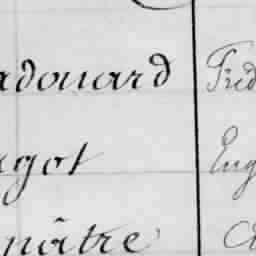 adouard Fréd
agot Eug
nâtre